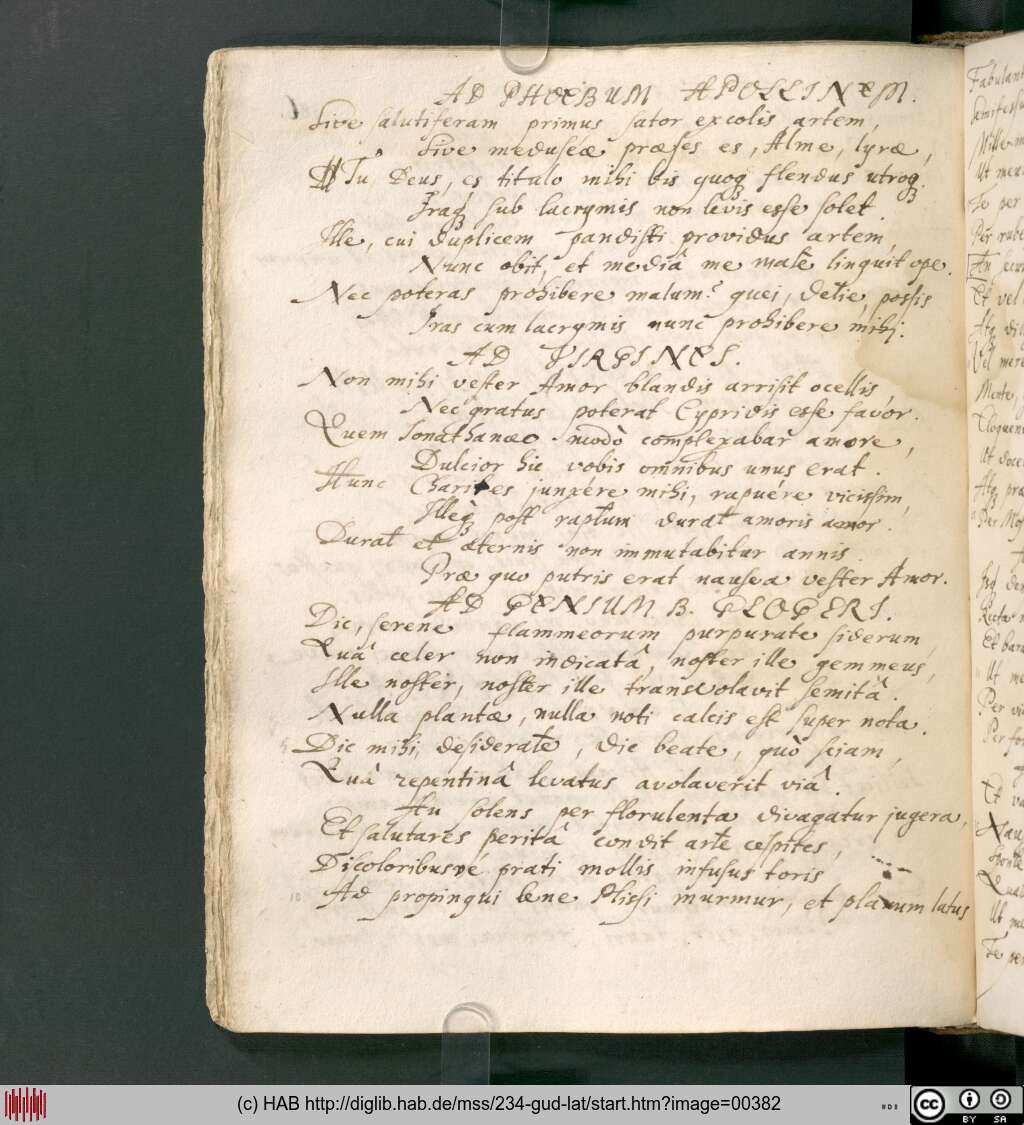 AD PHOEBUM APOLLINEM.
Sive salutiferam primus sator excolis artem,
Sive meduseæ præses es, Alme, lyræ,
Tu Deus, es titulo mihi bis quoq; flendus utroq;
Iraq; sub lacrymis non levis esse solet.
Ille, cui duplicem pandisti providus artem,
Nunc obit, et mediâ me malè linquit ope.
Nec poteras prohibere malum? quei, Delie, possis
Iras cum lacrymis nunc prohibere mihj.
AD VIRGINES.
Non mihi vester Amor blandis arrisit ocellis
Nec gratus poterat Cypridis esse favor.
Quem Jonathanæo modò complexabar amore,
Dulcior hic vobis omnibus unus erat.
Hunc Charites junxére mihi, rapuére vicissim,
Illeq; post raptum durat amoris amor.
Durat et æternis non immutabitur annis.
Præ quo putris erat nausea vester Amor.
AD GENIUM B. GLOGERI.
Dic, serene flammeorum purpurate siderum,
Quâ celer non indicatâ, noster ille gemmeus,
Ille noster, noster ille transvolavit semitâ.
Nulla plantæ, nulla noti calcis est super nota.
Dic mihi, desiderate, dic beate, quò sciam,
Quâ repentinâ levatus avolaverit viâ.
An solens per florulenta divagatur jugera,
Et salutares peritâ condit arte cespites,
Dicoloribusvé prati mollis infusus toris
Ad propinqui lene Plissi murmur, et planum latus
(c) HAB http://diglib.hab.de/mss/234-gud-lat/start.htm?image=00382
cc BY SA